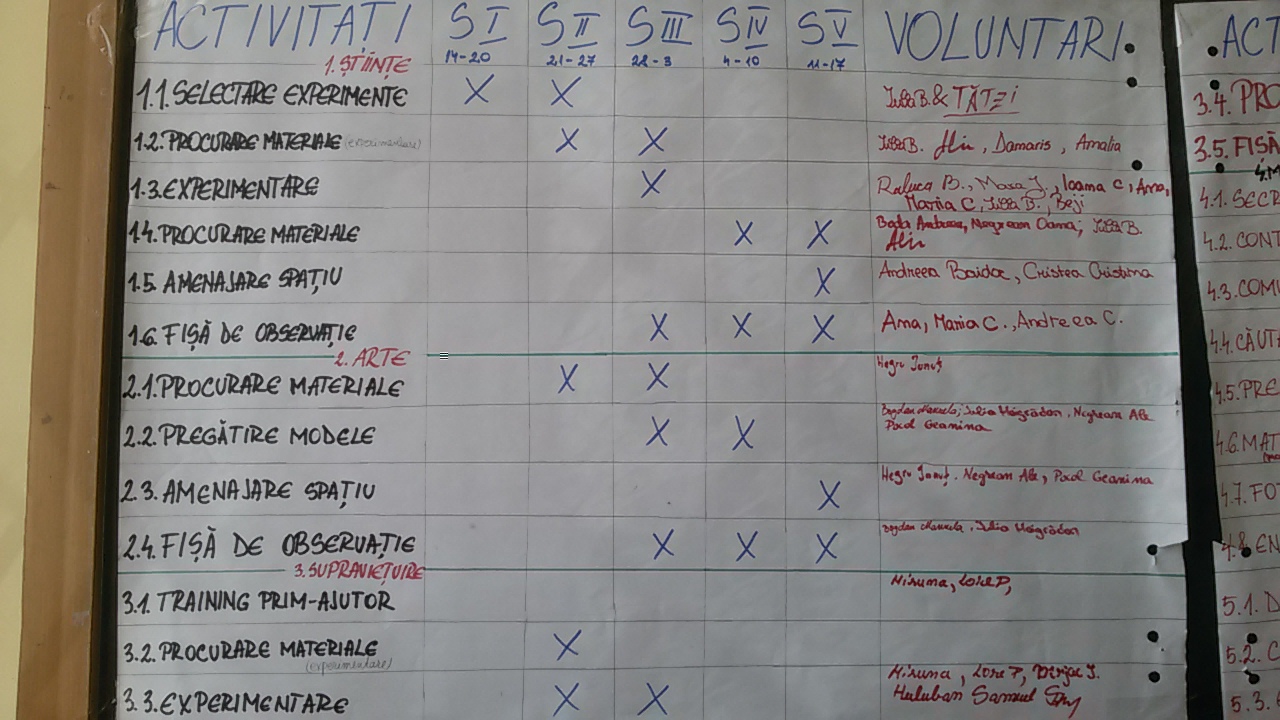 ACTIVITATI S I S II S III S IV S V VOLUNTARI
14-20 21-27 28-3 4-10 11-17
1. ȘTIINȚE
1.1. SELECTARE EXPERIMENTE X X Iulia B. & TĂTZI
1.2. PROCURARE MATERIALE (experimentare) X X Iulia B. Alin, Damaris, Amalia
1.3. EXPERIMENTARE X Raluca B., Mara J., Ioana C, Ana,
Maria C, Iulia B., Beji
1.4. PROCURARE MATERIALE X X Andreea, Negrean Oana, Iulia B.
Alin
1.5. AMENAJARE SPAȚIU X Andreea Boidoc, Cristea Cristina
1.6. FIȘĂ DE OBSERVAȚIE X X X Ana, Maria C., Andreea C.
2. ARTE
2.1. PROCURARE MATERIALE X X Negru Ionuț
2.2. PREGĂTIRE MODELE X X Bogdan Manuela, Iulia, Negrean Ale
Geanina
2.3. AMENAJARE SPAȚIU X Negru Ionuț, Negrean Ale, Geanina
2.4. FIȘĂ DE OBSERVAȚIE X X X Bogdan Manuela, Iulia
3. SUPRAVIEȚUIRE
3.1. TRAINING PRIM-AJUTOR Miruna, Lore P,
3.2. PROCURARE MATERIALE X
(experimentare)
3.3. EXPERIMENTARE X X Miruna, Lore P, J.
Huluban Samuel
ACT
3.4. PRO
3.5. FIȘĂ
4. M
4.1. SECR
4.2. CONT
4.3. COMU
4.4. CĂUTA
4.5. PRE
4.6. MAT
4.7. FOT
4.8. EN
5.1. D
5.2. C
5.3.